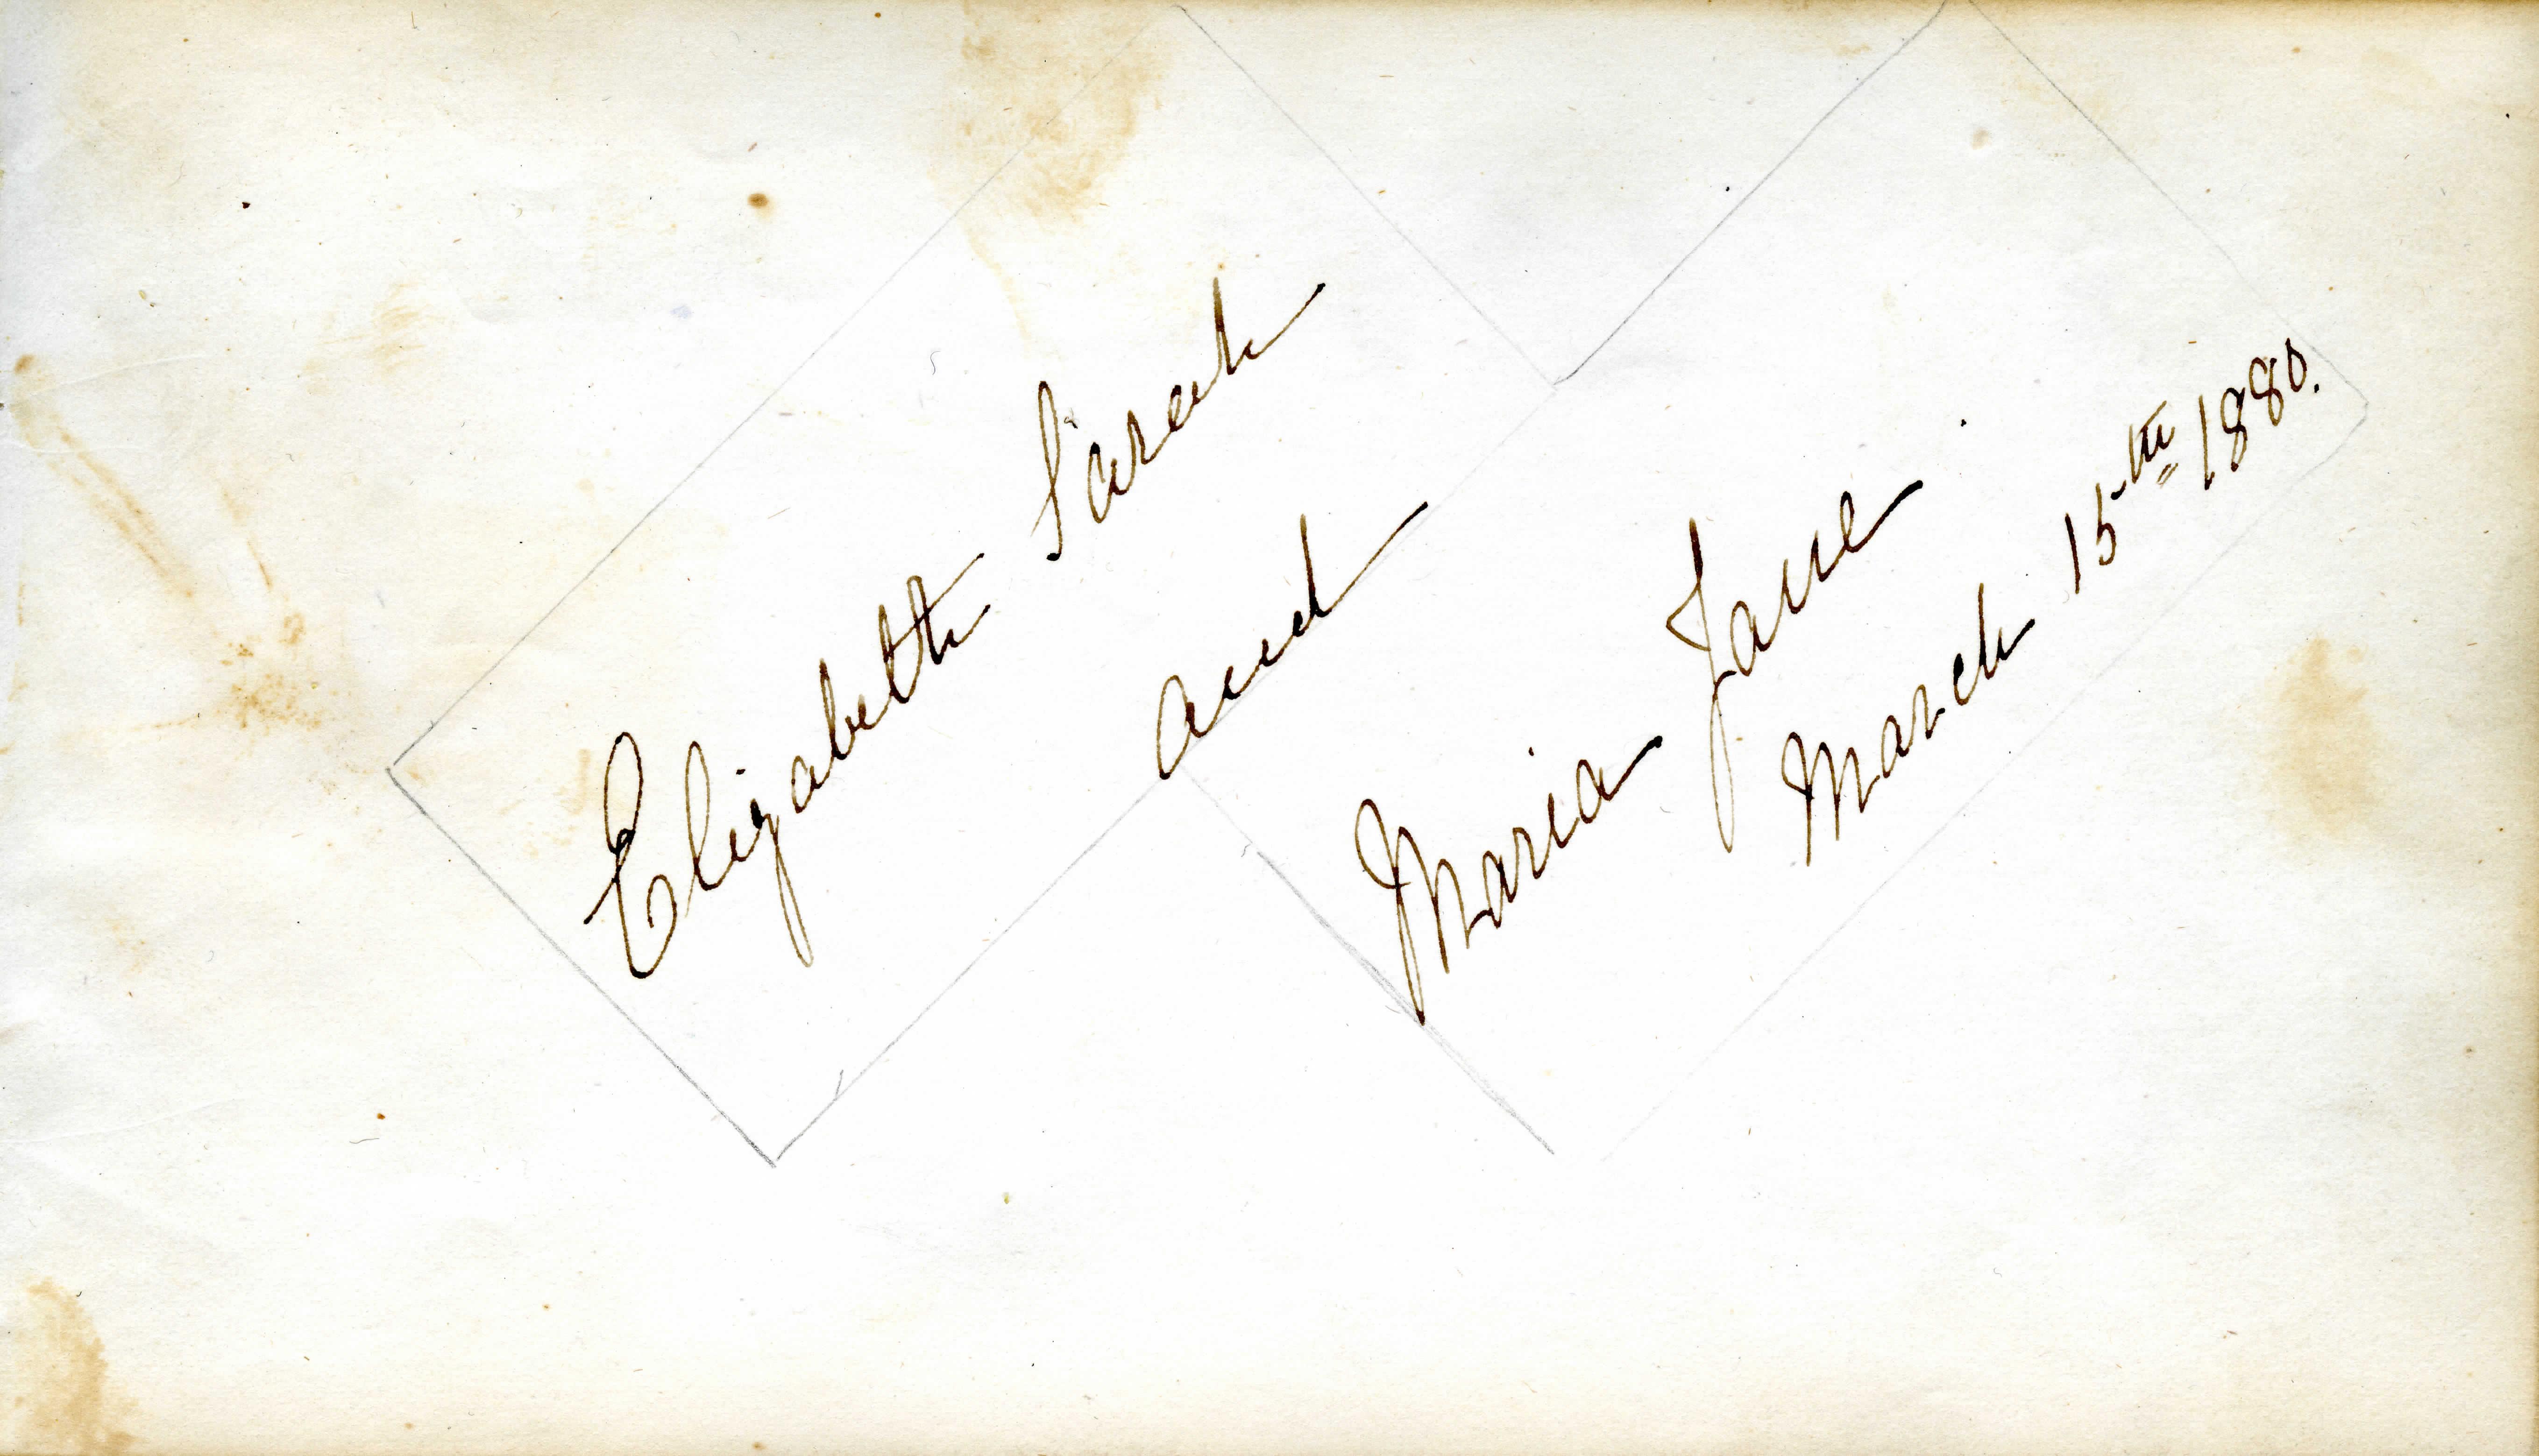 Elizabeth Sarah
and
Maria Jane.
March 15th 1880.